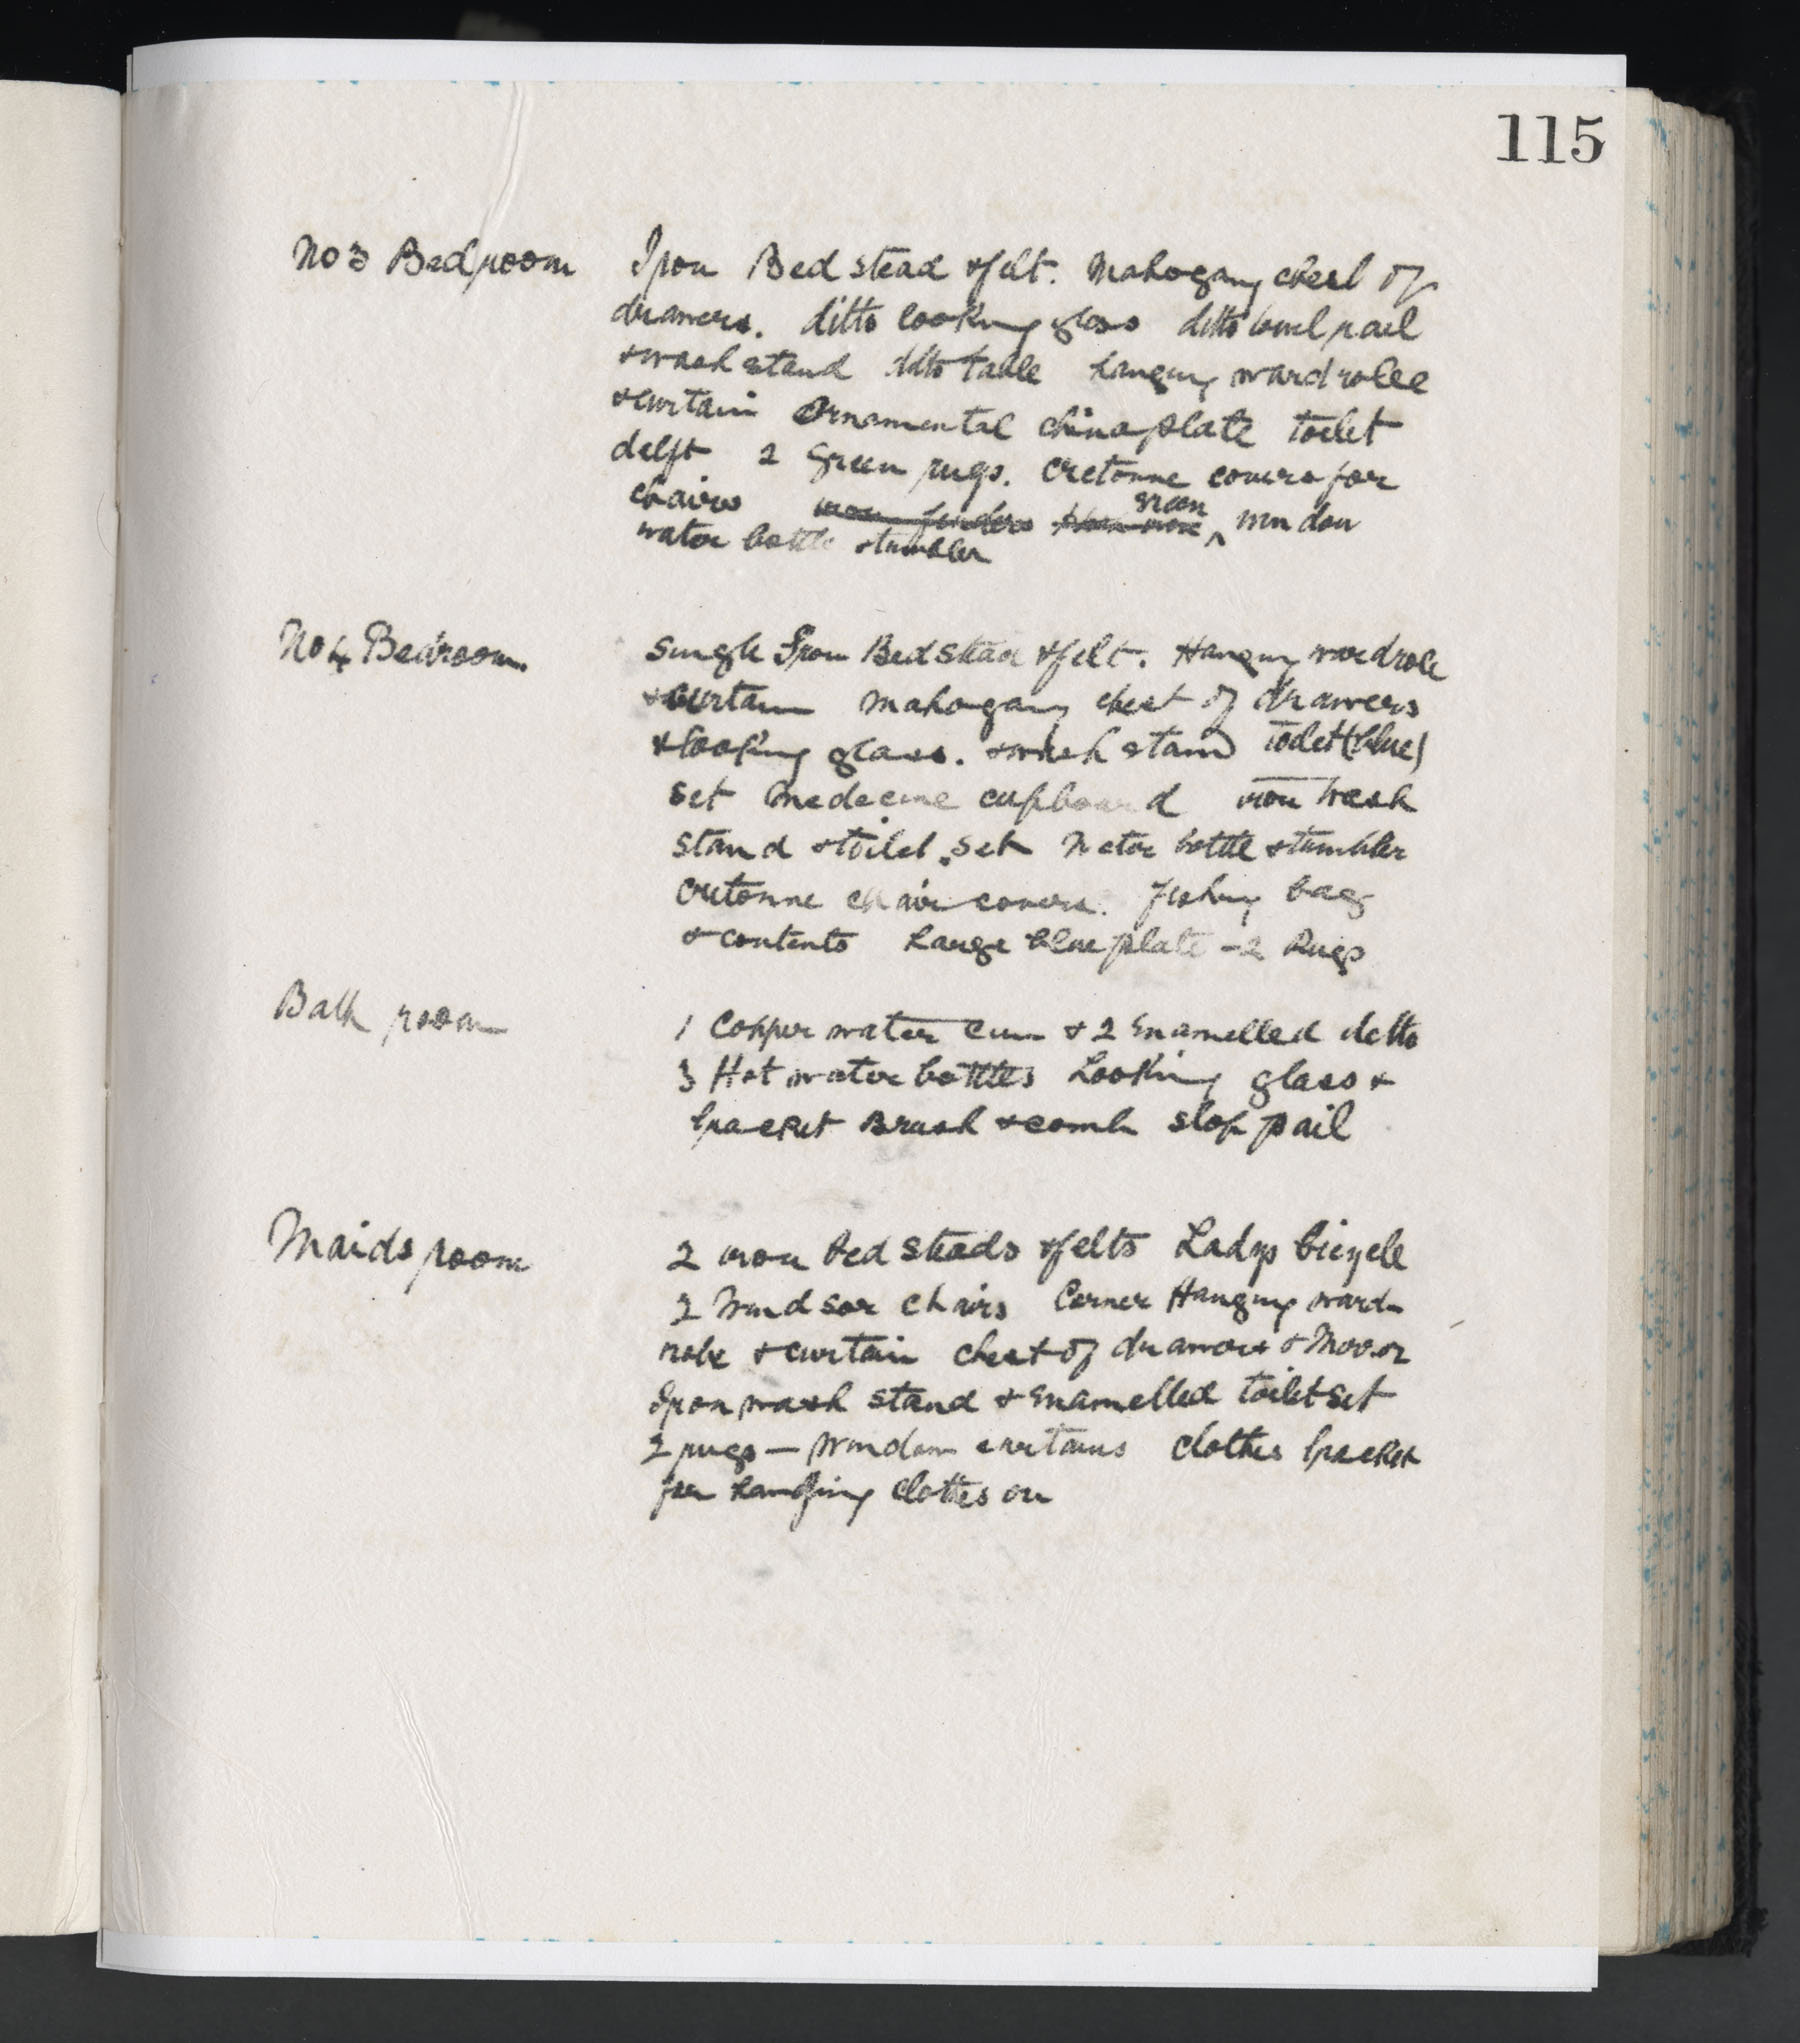 115
No 3 Bedroom Iron Bedstead & felt. Mahogany chest of
drawers. ditto looking glass ditto towel rail
& wash stand ditto table hanging wardrobe
& curtain Ornamental china plate toilet
delft 2 Green rugs. Cretonne covers for
chairs iron fenders green window
water bottle & tumbler
No 4 Bedroom. Single Iron Bedstead & felt. Hanging wardrobe
& curtain Mahogany chest of drawers
& looking glass. & wash stand toilet (blue)
set medecine cupboard iron wash
stand & toilet set Water bottle & tumbler
cretonne chair covers. fishing bag
& contents Large blue plate - 2 Rugs
Bath room 1 Copper water can & 2 Enamelled ditto
3 Hot water bottles Looking glass &
bracket Brush & comb slop pail
Maids room 2 iron bed steads & felts Ladys bicycle
2 Windsor chairs Corner Hanging ward-
robe & curtain chest of drawers & Mirror
Iron wash stand & Enamelled toilet set
2 rugs — Window curtains clothes bracket
for hanging clothes on